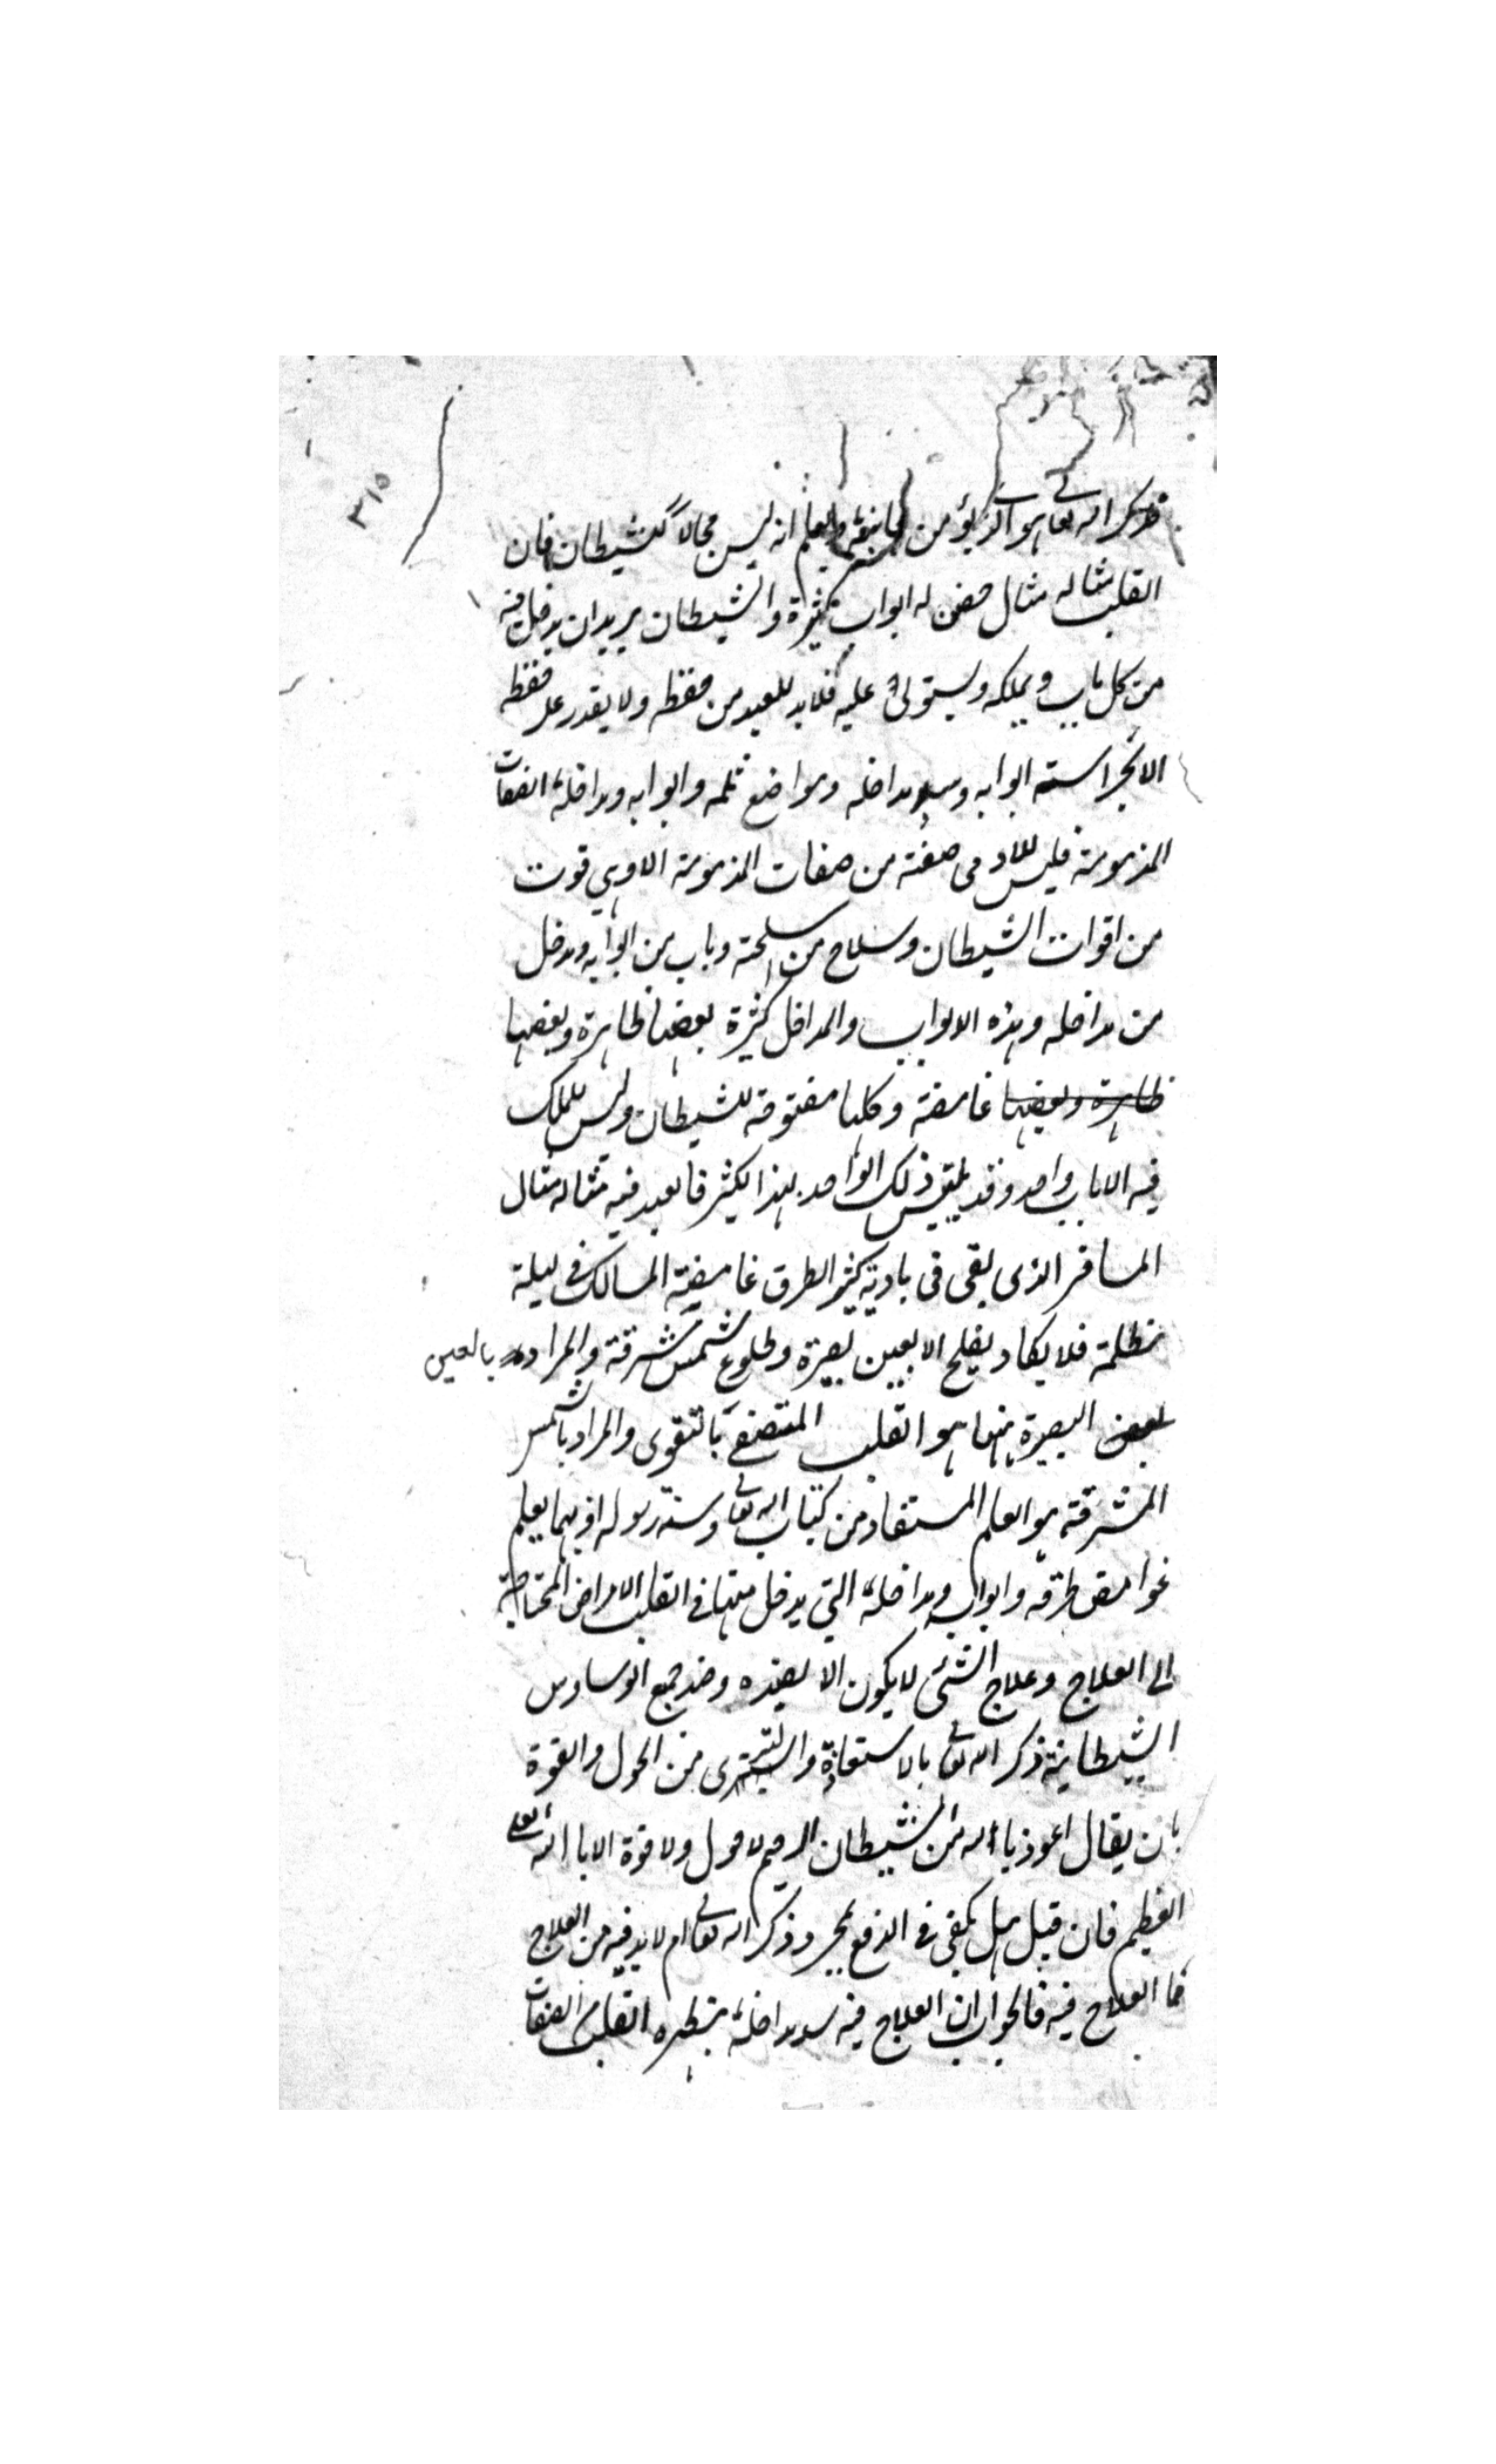 ٣١٥
فذكر الله تعالى هو الذي يؤمن جانبه ويعلم انه ليس مجالا للشيطان فان
القلب مثاله مثال حصن له ابواب كثيرة والشيطان يريد ان يدخل فيه
من كل باب ويملكه ويستولى عليه فلابد للعبد من حفظه ولا يقدر على حفظه
الا بحراسة ابوابه وسد مداخله ومواضع ثلمه وابوابه ومداخله الصفات
المذمومة فليس للادمى صفة من صفات المذمومة الا وهي قوت
من اقوات الشيطان وسلاح من اسلحته وباب من ابوابه ومدخل
من مداخله وهذه الابواب والمداخل كثيرة بعضها ظاهرة وبعضها
ظاهرة وبعضها غامضة وكلها مفتوحة للشيطان وليس للملك
فيه الا باب واحد وقد يلتبس ذلك الواحد بهذا الكثير فالعبد فيه مثاله مثال
المسافر الذى بقى فى بادية كثير الطرق غامضة المسالك في ليلة
مظلمة فلا يكاد يفلح الا بعين بصيرة وطلوع شمس مشرقة والمراد بالعين
البصيرة ههنا هو القلب المتصف بالتقوى والمراد بالشمس
المشرقة هو العلم المستفاد من كتاب الله تعالى وسنة رسوله اذ بهما يعلم
غوامض طرقه وابوابه ومداخله التي يدخل منها في القلب الامراض المحتاجة
الى العلاج وعلاج الشئ لا يكون الا بضده وضد جميع الوساوس
الشيطانية ذكر الله تعالى بالاستعاذة والتبرى من الحول والقوة
بان يقال اعوذ بالله من الشيطان الرجيم لا حول ولا قوة الا بالله العلى
العظيم فان قيل هل يكفى في الدفع مجرد ذكر الله تعالى ام لا بد فيه من العلاج
فما العلاج فيه فالجواب ان العلاج فيه سد مداخله بتطهير القلب من الصفات